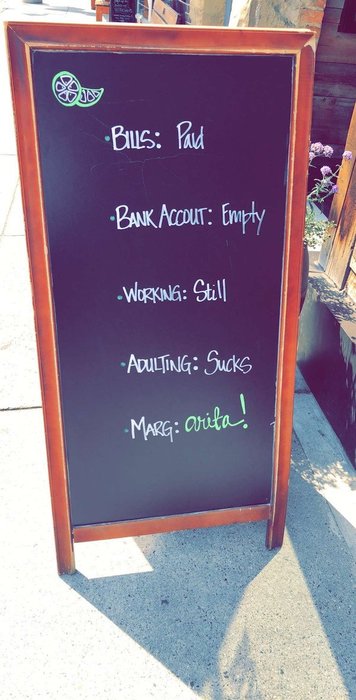 • BILLS: Paid
• BANK ACCOUT: Empty
• WORKING: Still
• ADULTING: Sucks
• MARG: arita!